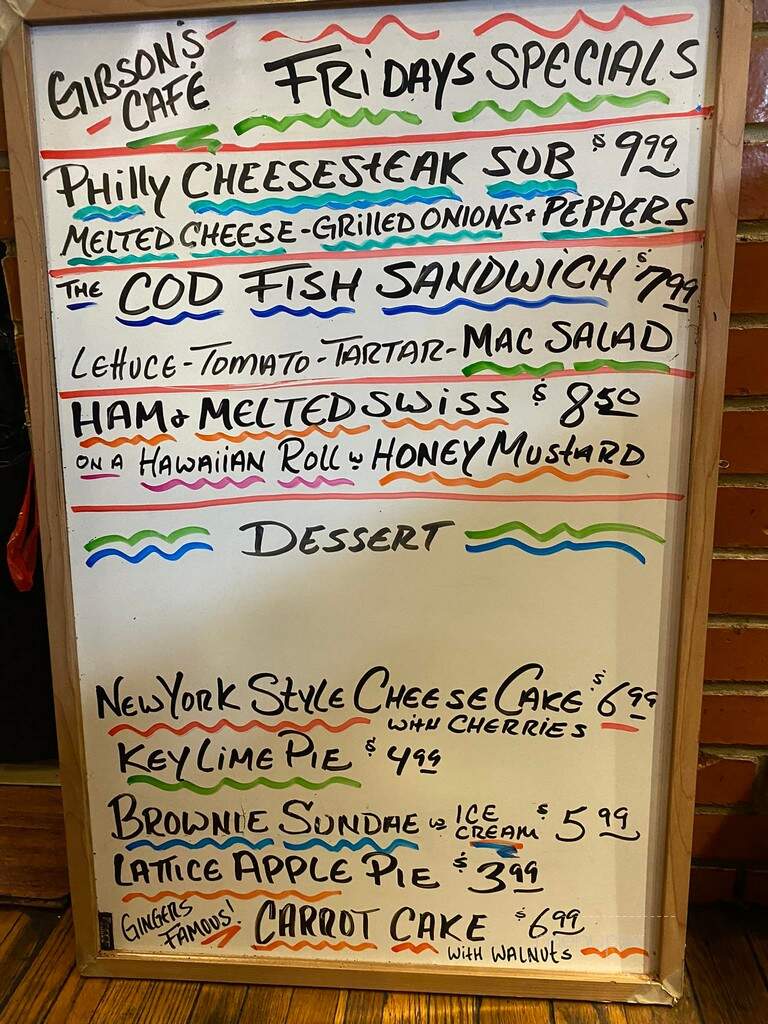 GIBSON'S
CAFÉ
FRIDAYS SPECIALS
PHILLY CHEESESTEAK SUB $9.99
MELTED CHEESE - GRILLED ONIONS + PEPPERS
THE COD FISH SANDWICH $7.99
LETTUCE - TOMATO - TARTAR - MAC SALAD
HAM & MELTED SWISS $8.50
ON A HAWAIIAN ROLL W HONEY MUSTARD
DESSERT
NEW YORK STYLE CHEESE CAKE $6.99
WITH CHERRIES
KEY LIME PIE $4.99
BROWNIE SUNDAE W ICE CREAM $5.99
LATTICE APPLE PIE $3.99
GINGERS FAMOUS! CARROT CAKE $6.99
WITH WALNUTS